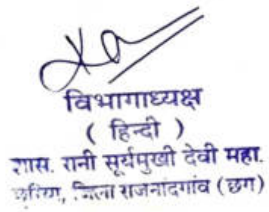 विभागाध्यक्ष
( हिन्दी )
शास. रानी सूर्यमुखी देवी महा.
छुरिया, जिला राजनांदगांव (छग)